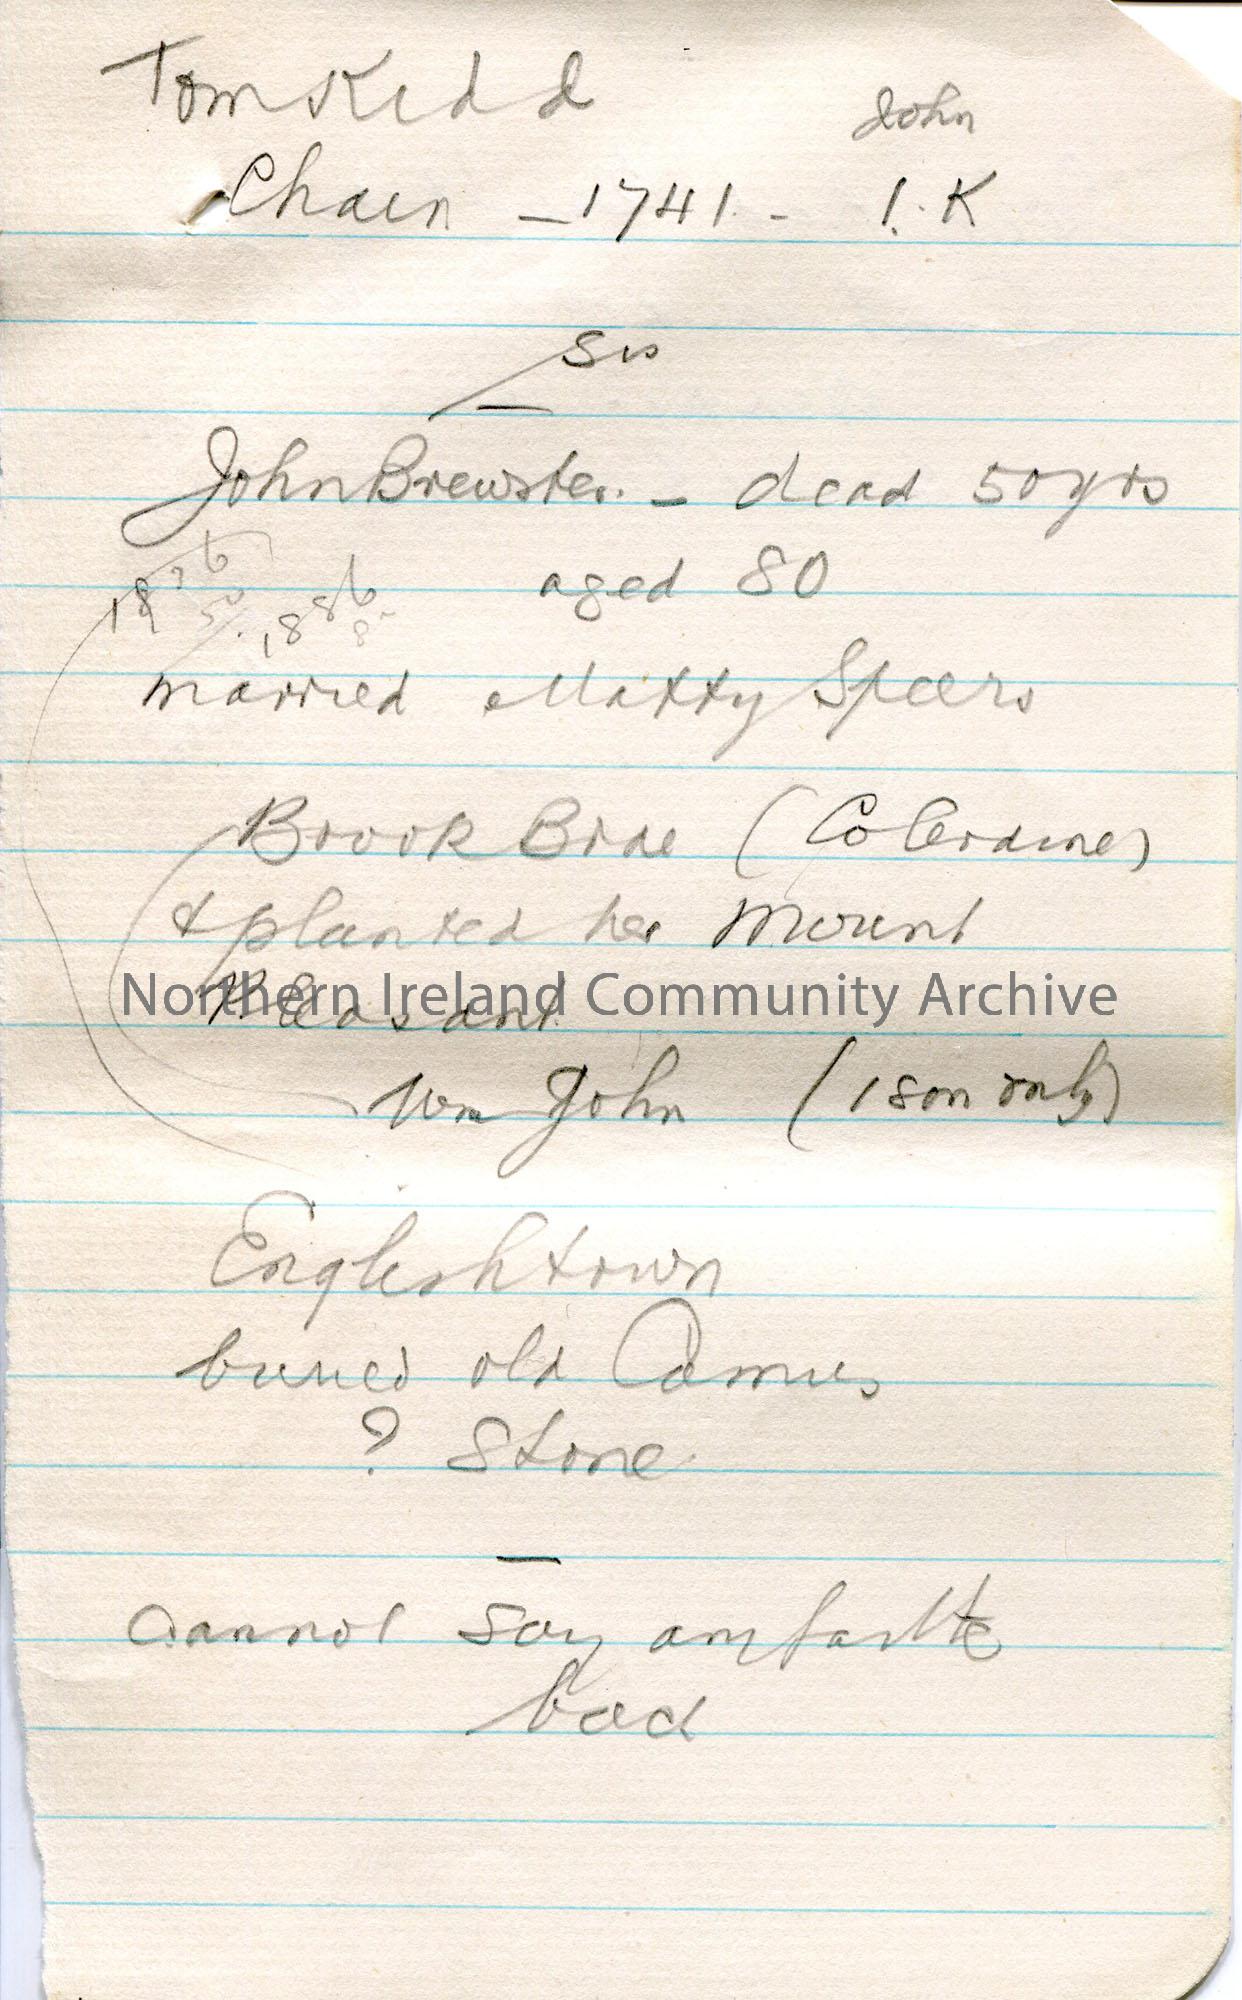 Tom Kidd
John
Chain - 1741. - I. K
Sis
John Brewster. - dead 50yrs
aged 80
1886
married Matty Speers
Brook Brae (Coleraine)
& planted her Mount
Pleasant
Wm John (1 son only)
Englishtown
buried old Camus
? Stone
cannot say
bad
Northern Ireland Community Archive